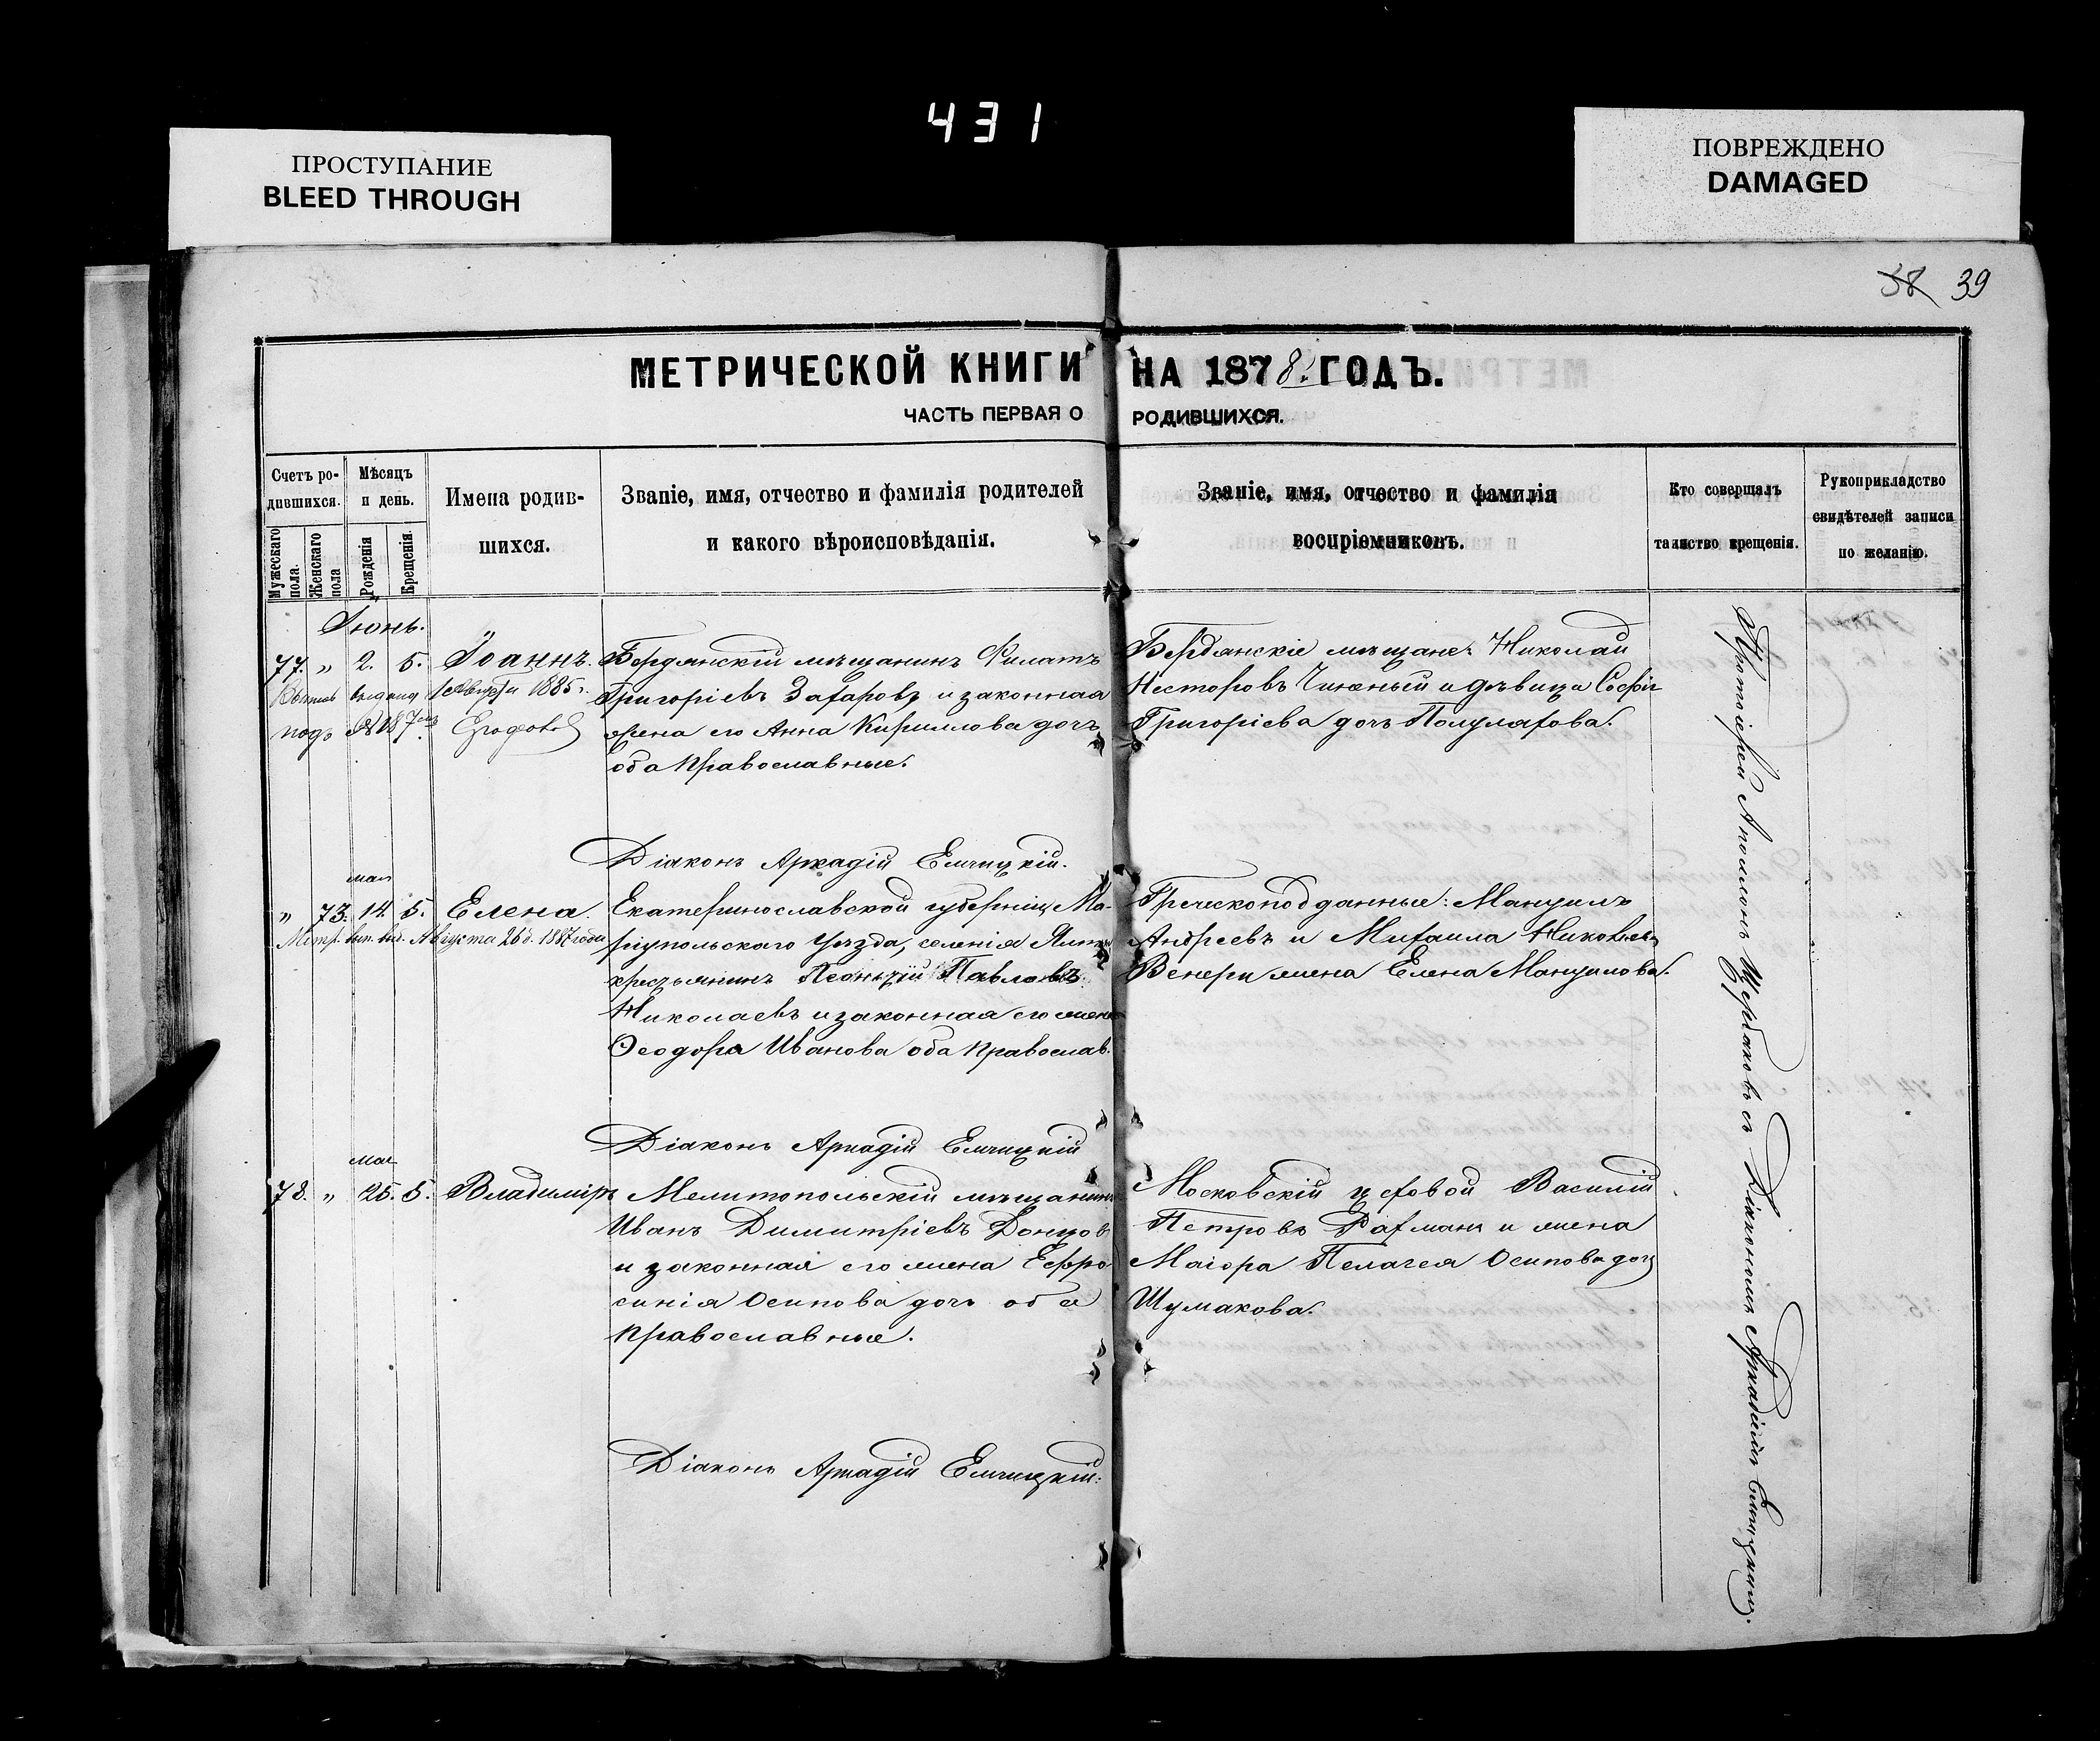 431
ПРОСТУПАНИЕ
BLEED THROUGH
ПОВРЕЖДЕНО
DAMAGED
38 39
МЕТРИЧЕСКОЙ КНИГИ НА 1878 ГОДЪ.
ЧАСТЬ ПЕРВАЯ О РОДИВШИХСЯ.
Счетъ ро-
дившихся.
Мужескаго пола.
Женскаго пола
Мѣсяцъ
и день.
Рожденія
Крещенія.
Имена родив-
шихся.
Званіе, имя, отчество и фамилія родителей
и какого вѣроисповѣданія.
Званіе, имя, отчество и фамилія
воспріемниковъ.
Кто совершалъ
таинство крещенія.
Рукоприкладство
свидѣтелей записи
по желанію.
Іюнь.
77. " 2. 5. Іоаннъ.
Выпись выдана 1 Августа 1885 г.
подъ № 187
Бердянскій мѣщанинъ Филатъ
Григоріевъ Захаровъ и законная
жена его Анна Кириллова дочь
оба православные.
Бердянскіе мѣщане: Николай
Несторовъ и дѣвица Софія
Григоріева дочь
Діаконъ Аркадій Елчицкій.
мая
" 73. 14. 5. Елена.
Метр. вып. выд. Августа 26 д. 1887 года
Екатеринославской губерніи, Ма-
ріупольскаго уѣзда, селенія
крестьянинъ Леонтій Павловъ
Николаевъ и законная его жена
Ѳеодора Иванова оба православ.
Греческоподданные: Мануилъ
Андреевъ и Михаила
Венери жена Елена Мануилова.
Діаконъ Аркадій Елчицкій
мая
78. " 25. 5. Владиміръ
Мелитопольскій мѣщанинъ
Иванъ Димитріевъ Донцовъ
и законная его жена Ефро
синія Осипова дочь оба
православные.
Московскій цеховой Василій
Петровъ Рахманъ и жена
Маіора Пелагея Осипова дочь
Шумакова.
Діаконъ Аркадій Елчицкій.
Протоіерей Аполлонъ Щербаковъ съ Діакономъ Аркадіемъ Елчицкимъ.